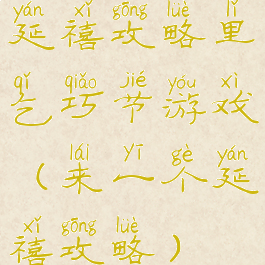 yán xǐ gōng lüè lǐ
延禧攻略里
qǐ qiǎo jié yóu xì
乞巧节游戏
lái yī gè yán
(来一个延
xǐ gōng lüè
禧攻略)